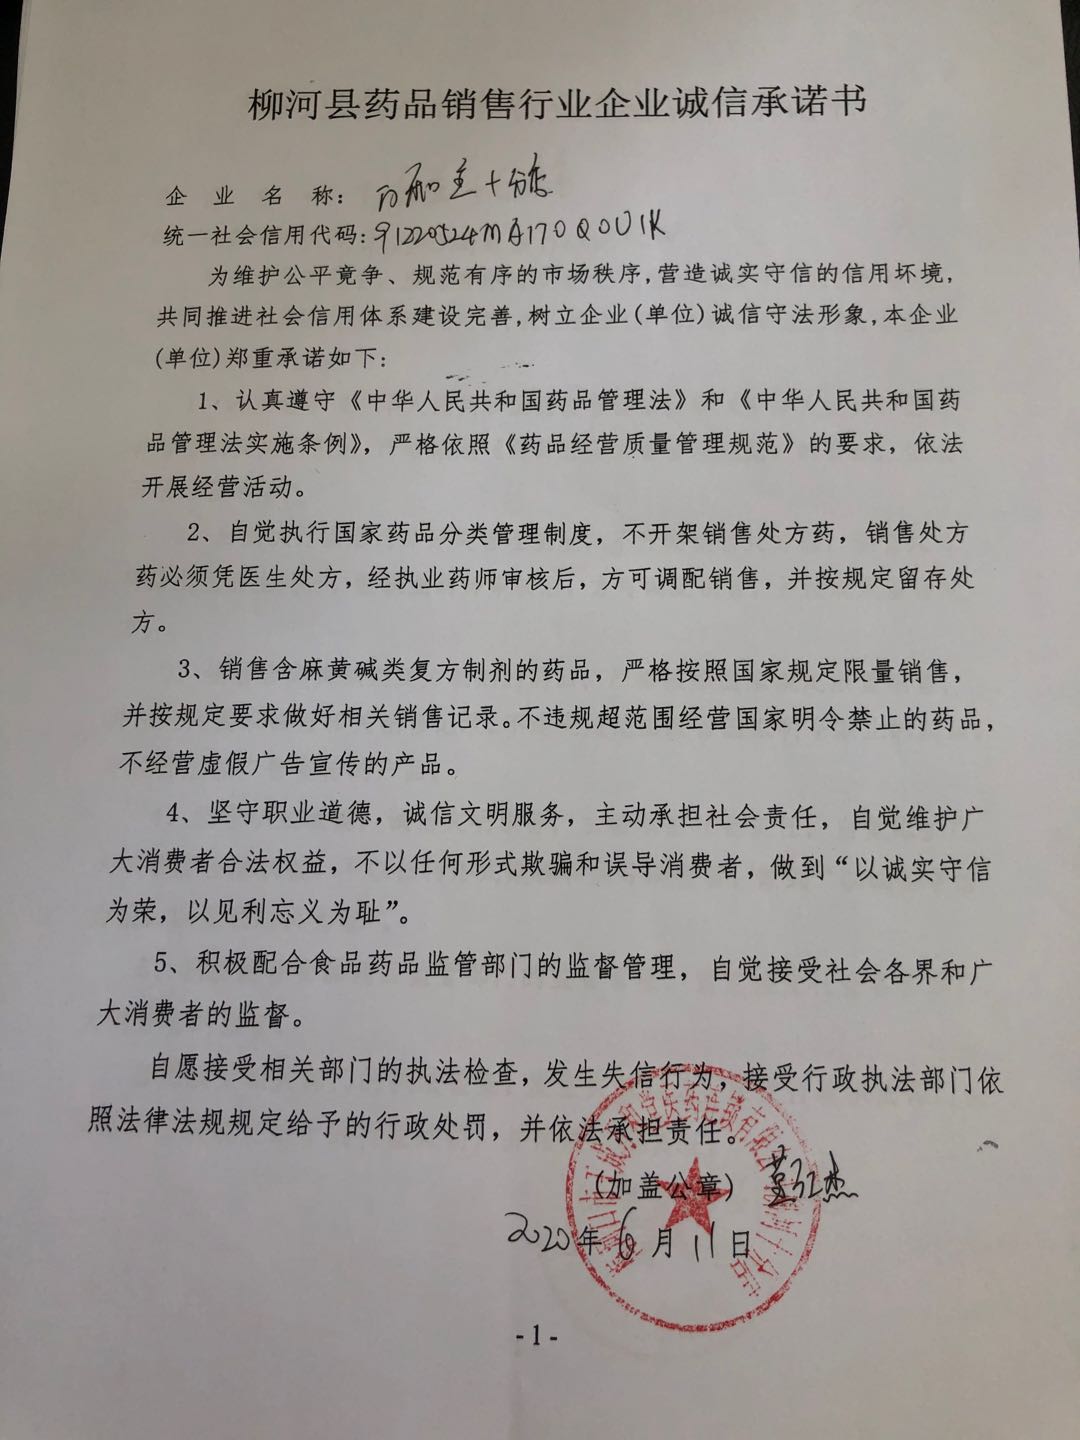 柳河县药品销售行业企业诚信承诺书
企 业 名 称：百和堂十分店
统一社会信用代码：91220524MA170Q0U1K
为维护公平竟争、规范有序的市场秩序，营造诚实守信的信用坏境，
共同推进社会信用体系建设完善，树立企业(单位)诚信守法形象，本企业
(单位)郑重承诺如下：
1、认真遵守《中华人民共和国药品管理法》和《中华人民共和国药
品管理法实施条例》，严格依照《药品经营质量管理规范》的要求，依法
开展经营活动。
2、自觉执行国家药品分类管理制度，不开架销售处方药，销售处方
药必须凭医生处方，经执业药师审核后，方可调配销售，并按规定留存处
方。
3、销售含麻黄碱类复方制剂的药品，严格按照国家规定限量销售，
并按规定要求做好相关销售记录。不违规超范围经营国家明令禁止的药品，
不经营虚假广告宣传的产品。
4、坚守职业道德，诚信文明服务，主动承担社会责任，自觉维护广
大消费者合法权益，不以任何形式欺骗和误导消费者，做到“以诚实守信
为荣，以见利忘义为耻”。
5、积极配合食品药品监管部门的监督管理，自觉接受社会各界和广
大消费者的监督。
自愿接受相关部门的执法检查，发生失信行为，接受行政执法部门依
照法律法规规定给予的行政处罚，并依法承担责任。
(加盖公章)
2020年6月11日
-1-